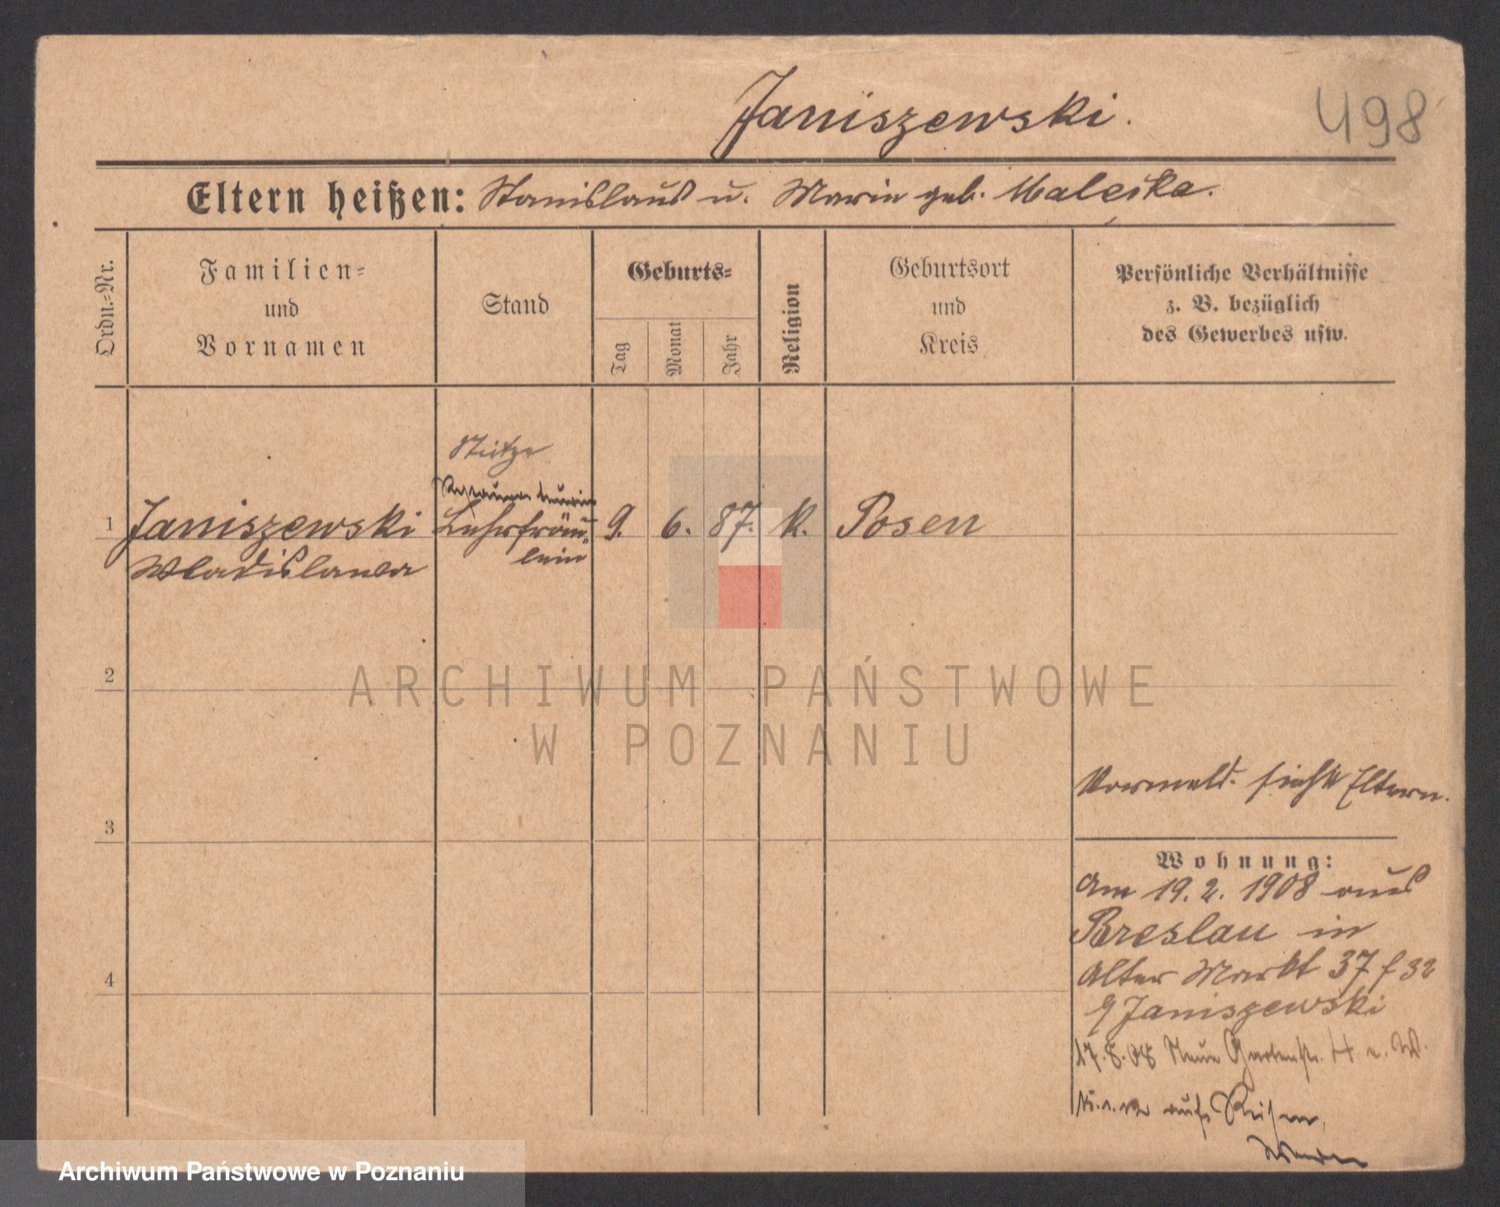 Janiszewski.
498
Eltern heißen: Stanislaus u. Marie geb. Maleska.
Ordn.-Nr.
Familien-
und
Vornamen
Stand
Geburts-
Tag
Monat
Jahr
Religion
Geburtsort
und
Kreis
Persönliche Verhältnisse
z. B. bezüglich
des Gewerbes usw.
Stütze
1 Janiszewski Lehrfräu- 9. 6. 87. k. Posen
Wladislawa lein
2
Vormeld. siehe Eltern.
3
Wohnung:
Am 19. 2. 1908 aus
Breslau in
Alter Markt 37
Janiszewski
4
17.8.08 Neue Gartenstr.
auf Reisen,
ARCHIWUM PAŃSTWOWE
W POZNANIU
Archiwum Państwowe w Poznaniu